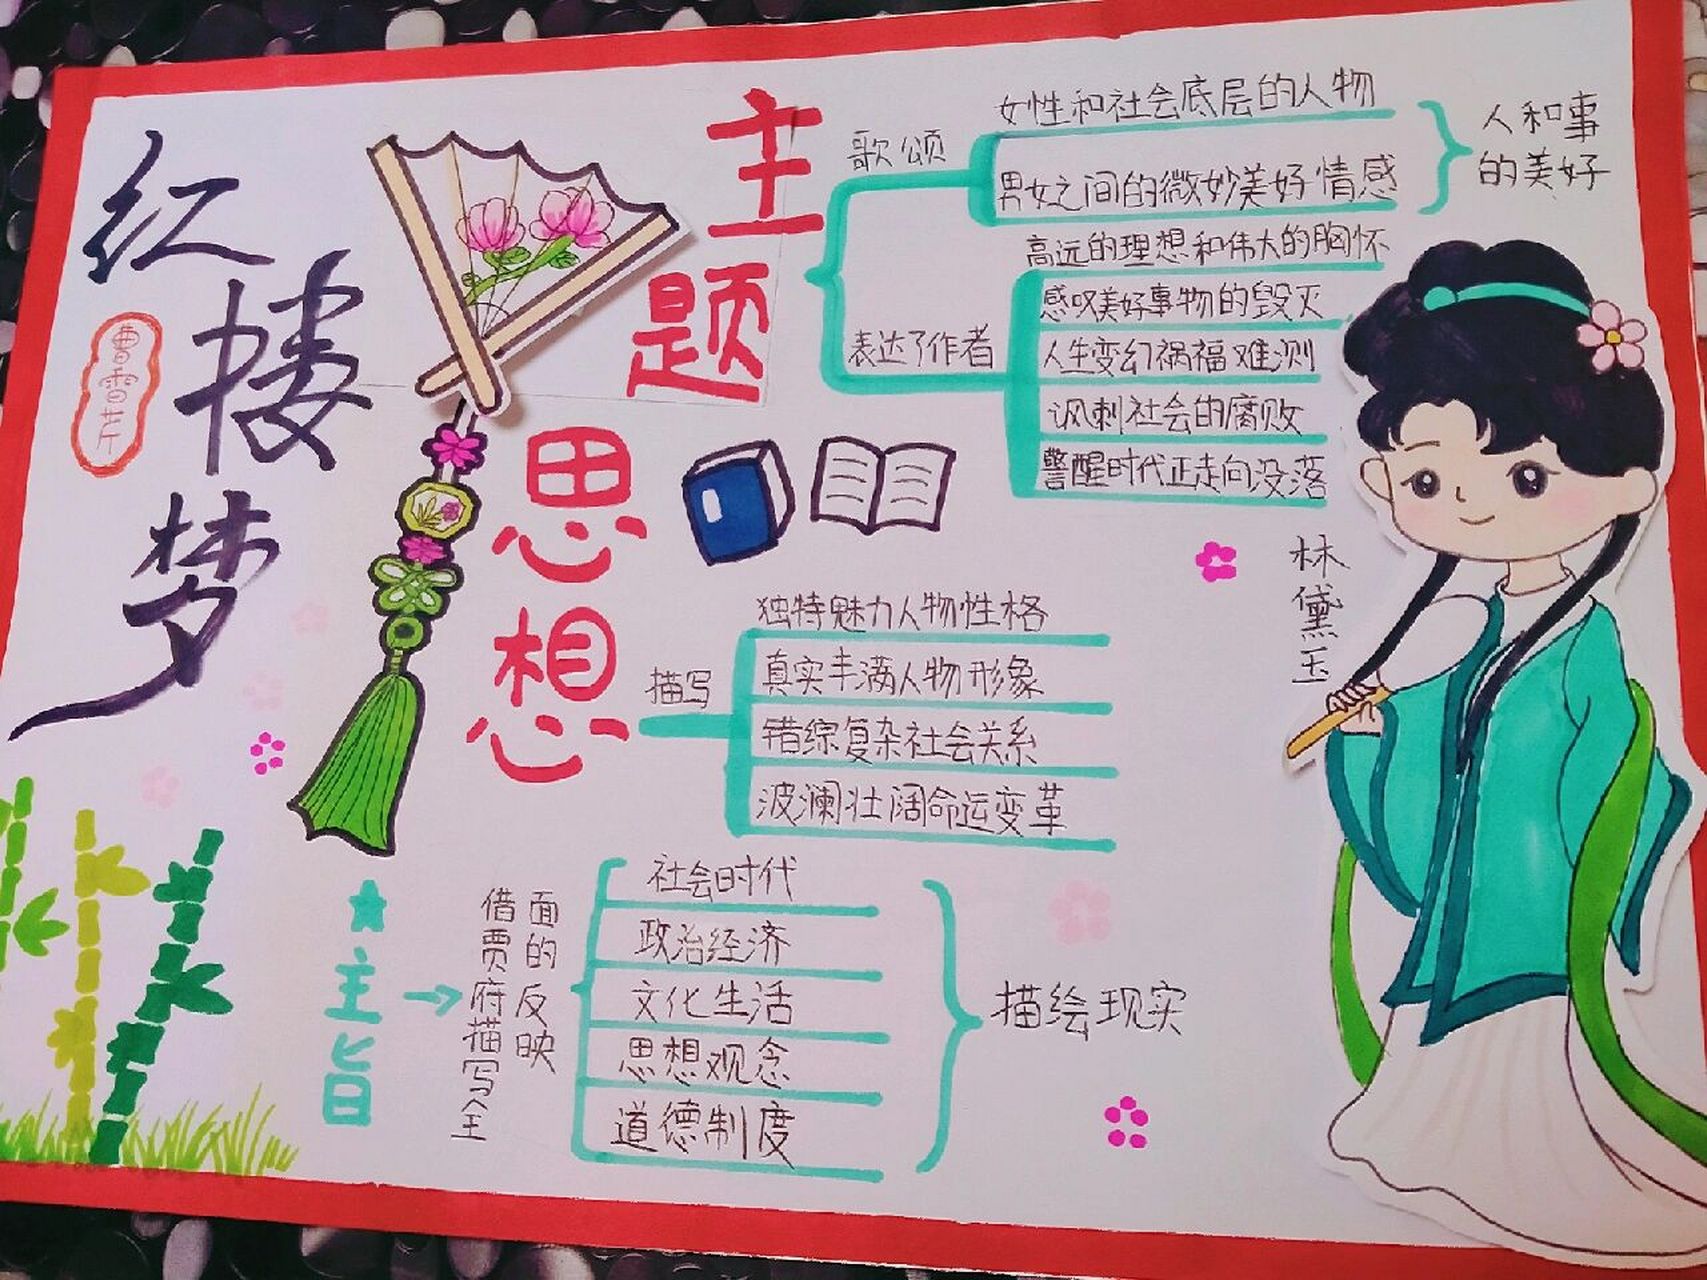 红楼梦
曹雪芹
主题思想
歌颂
女性和社会底层的人物
男女之间的微妙美好情感
人和事
的美好
表达了作者
高远的理想和伟大的胸怀
感叹美好事物的毁灭
人生变幻祸福难测
讽刺社会的腐败
警醒时代正走向没落
林黛玉
描写
独特魅力人物性格
真实丰满人物形象
错综复杂社会关系
波澜壮阔命运变革
主旨
借贾府描写全
面的反映
社会时代
政治经济
文化生活
思想观念
道德制度
描绘现实